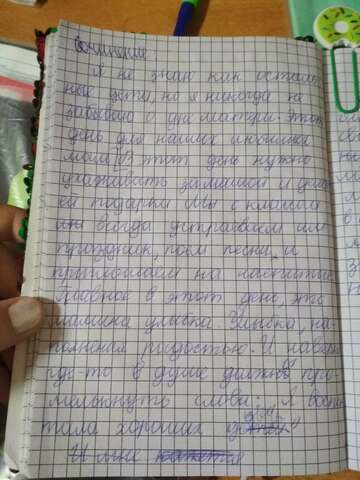 Сочинение
Я не знаю как осталь
ные дети, но я никогда не
забываю о дне матери. Этот
день для наших любимых
мам. В этот день нужно
ухаживать за мамой и
ей подарки. Мы с классом
всегда устраиваем им
праздник, поём песни, и
приглашаем на чаепитие.
Главное в этот день, это
мамина улыбка. Улыбка, на-
полненая радостью. И навер
где-то в душе должно про
мелькнуть слова: „Я воспи
тала хороших
И мне кажется